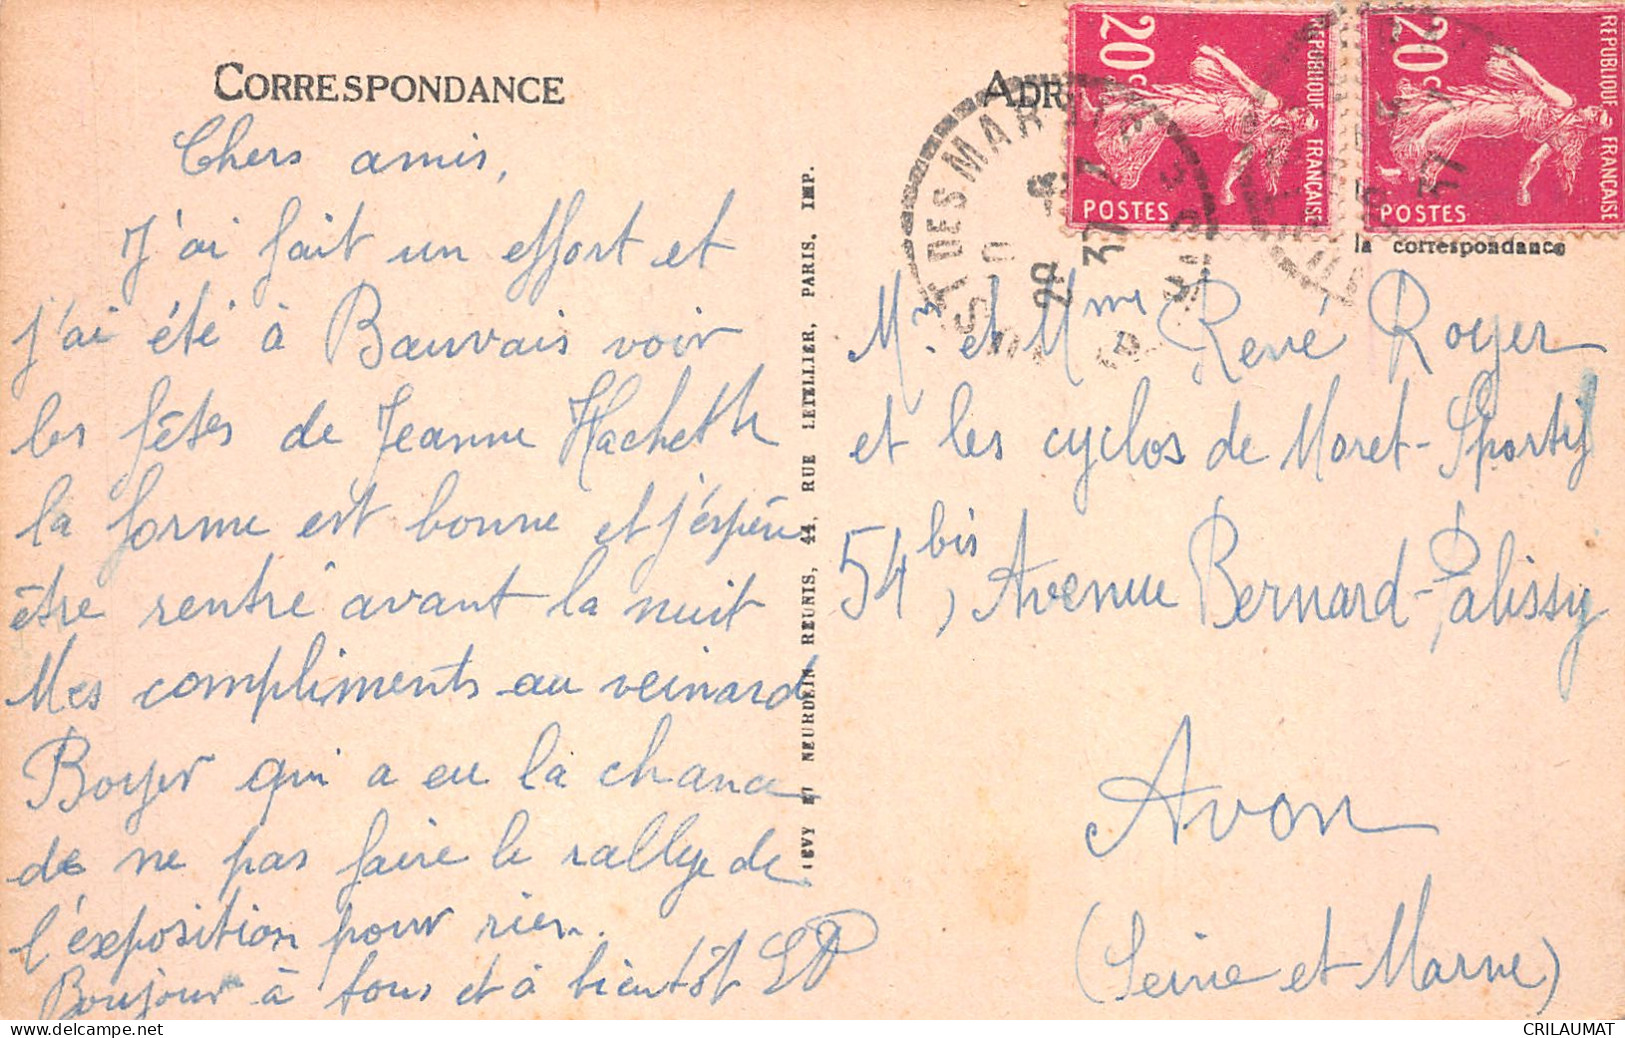 CORRESPONDANCE
Chers amis,
J'ai fait un effort et
j'ai été à Bauvais voir
les fêtes de Jeanne Hachette
la forme est bonne et j'espère
être rentré avant la nuit
Mes compliments au veinard
Boyer qui a eu la chance
de ne pas faire le rallye de
l'exposition pour rien.
Boujour à tous et à bientôt
LEVY ET NEURDEIN REUNIS, 44, RUE LETELLIER, PARIS. IMP.
ADR
20c
POSTES
REPUBLIQUE FRANÇAISE
20c
POSTES
REPUBLIQUE FRANÇAISE
la correspondance
Mr. et Mme René Royer
et les cyclos de Moret-Sportif
54bis, Avenue Bernard-Palissy
Avon
(Seine et Marne)
CRILAUMAT